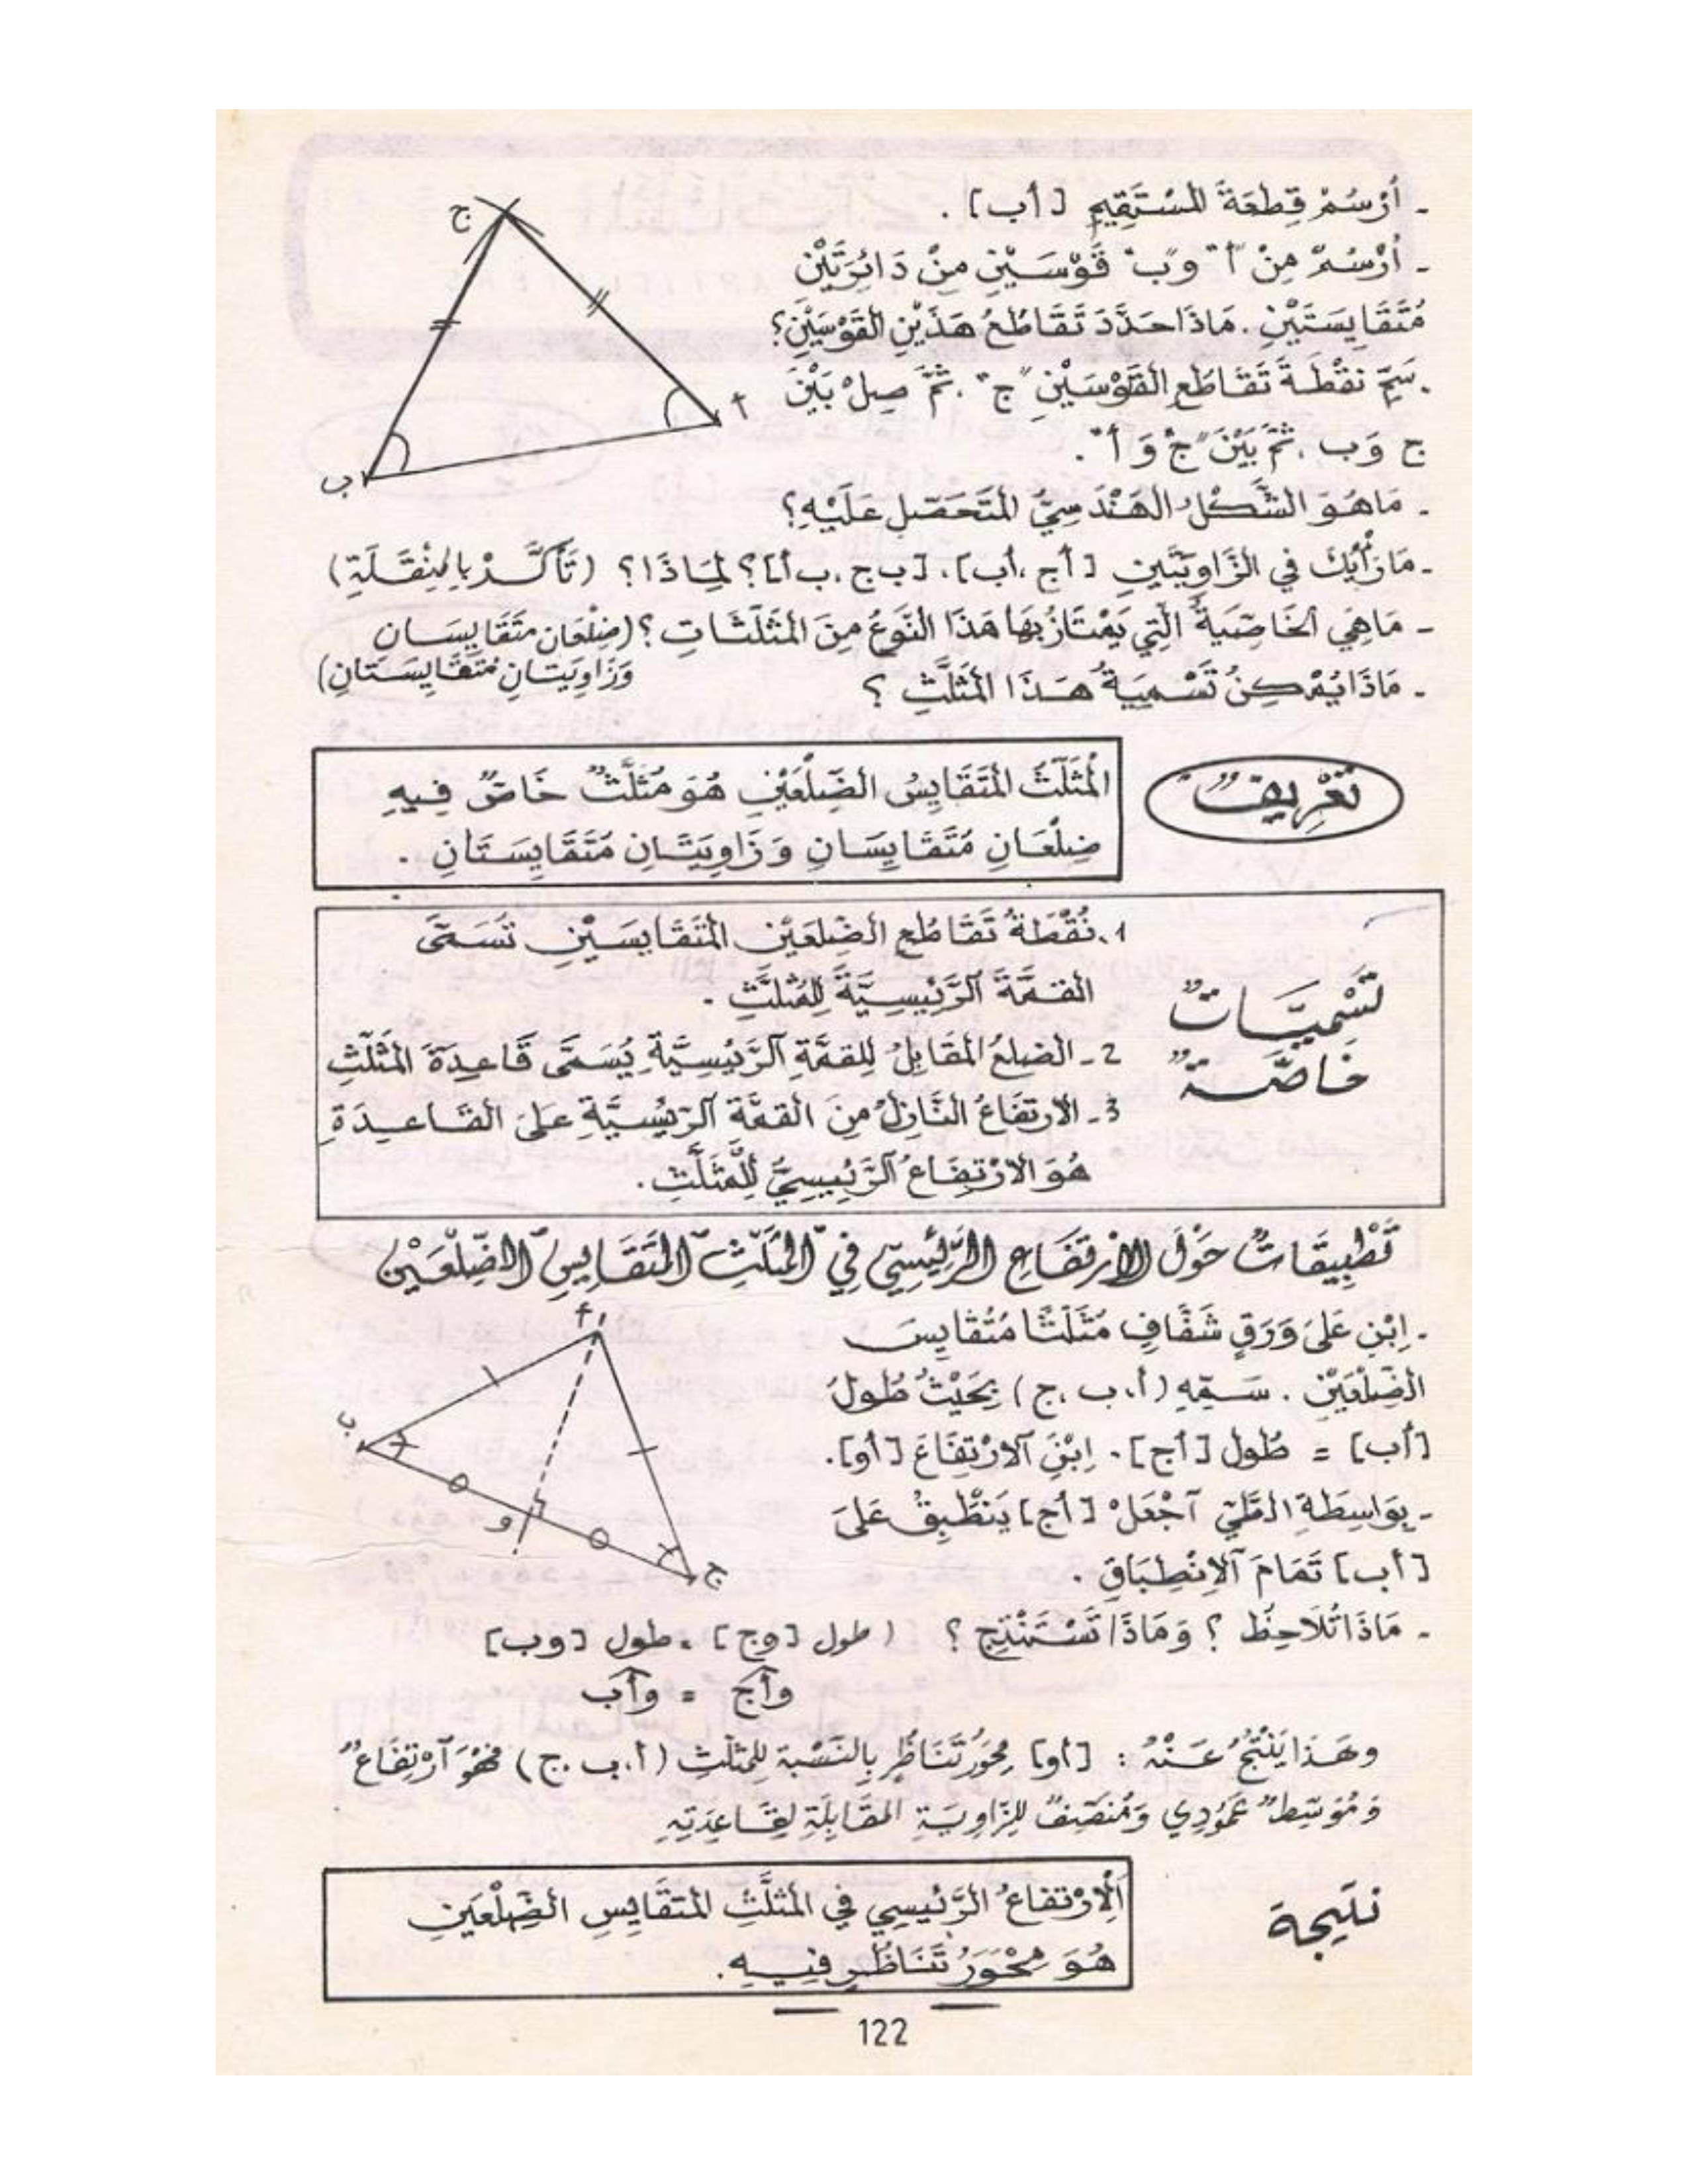 ج
أ
ب
- أُرْسُمْ قِطعَةَ المُسْتَقِيمِ [أب].
- أُرْسُمْ مِنْ "أ" و"ب" قَوْسَيْنِ مِنْ دَائِرَتَيْنِ
مُتَقَايِسَتَيْنِ. مَاذَا حَدَّدَ تَقَاطُعُ هَذَيْنِ القَوْسَيْنِ؟
. سَمِّ نقْطَةَ تَقَاطُعِ القَوْسَيْنِ "ج"، ثُمَّ صِلْ بَيْنَ
ج وَب، ثُمَّ بَيْنَ "ج" وَ "أ".
- مَا هُوَ الشَّكْلُ الهَنْدَسِيُّ المُتَحَصَّلِ عَلَيْهِ؟
- مَا رَأْيُكَ في الزَّاوِيَتَيْنِ [أج، أب]، [ب ج، ب أ]؟ لِمَاذَا؟ (تَأَكَّدْ بِالمِنْقَلَةِ)
- مَاهِي الخَاصِّيَةُ الَّتِي يَمْتَازُ بِهَا هَذَا النَّوْعُ مِنَ المُثَلَّثَاتِ؟ (ضِلْعَانِ مُتَقَايِسَانِ
وَزَاوِيَتَانِ مُتَقَايِسَتَانِ)
- مَاذَا يُمْكِنُ تَسْمِيَةُ هَذَا المُثَلَّثِ؟
تَعْرِيفٌ
المُثَلَّثُ المُتَقَايِسُ الضِّلْعَيْنِ هُوَ مُثَلَّثٌ خَاصٌّ فِيهِ
ضِلْعَانِ مُتَقَايِسَانِ وَزَاوِيَتَانِ مُتَقَايِسَتَانِ.
تَسْمِيَّاتٌ
خَاصَّةٌ
1. نُقْطَةُ تَقَاطُعِ الضِّلعَيْنِ المُتَقَايِسَيْنِ تُسَمَّى
القمَّةَ الرَّئِيسِيَّةَ لِلمُثلَّثِ.
2- الضلعُ المُقَابِلُ لِلقمَّةِ الرَّئِيسِيَّةِ يُسَمَّى قَاعِدَةَ المُثَلَّثِ
3- الارتفَاعُ النَّازِلُ مِنَ القمَّةِ الرَّئِيسِيَّةِ عَلَى القَاعِدَةِ
هُوَ الارْتِفَاعُ الرَّئِيسِيُّ لِلْمُثَلَّثِ.
تَطْبِيقَاتٌ حَوْلَ الاِرْتفَاعِ الرَّئِيسِي فِي المُثَلَّثِ المُتَقَايِسِ الضِّلْعَيْن
أ
ب
و
ج
- اِبْنِ عَلَى وَرَقٍ شَفَّافٍ مُثَلَّثًا مُتَقَايِسَ
الضِّلْعَيْنِ. سَمِّهِ (أ، ب، ج) بِحَيْثُ طُولُ
[أب] = طُول [أج]. اِبْنِ الارْتِفَاعَ [أو].
- بِوَاسِطَةِ الطَّيِّ اجْعَلْ [أج] يَنْطَبِقُ عَلَى
[أب] تَمَامَ الاِنْطِبَاقِ.
- مَاذَا تُلَاحِظُ؟ وَمَاذَا تَسْتَنْتِجُ؟ (طول [وج] = طول [وب]
وأج = وأب
وهَذَا يَنْتُجُ عَنْهُ: [أو] مِحْوَرُ تَنَاظُرٍ بِالنِّسْبَةِ لِلمُثلَّثِ (أ. ب. ج) فَهُوَ ارْتِفَاعٌ
وَمُوَسِّطٌ عَمُودِي وَمُنَصِّفٌ لِلزَّاوِيَةِ المُقَابِلَةِ لِقَاعِدَتِهِ
نتيجة
اَلاِرْتفاعُ الرَّئيسِي في المُثلَّثِ المُتقَايِسِ الضِّلْعَيْنِ
هُوَ مِحْوَرُ تَنَاظُرٍ فِيهِ.
122